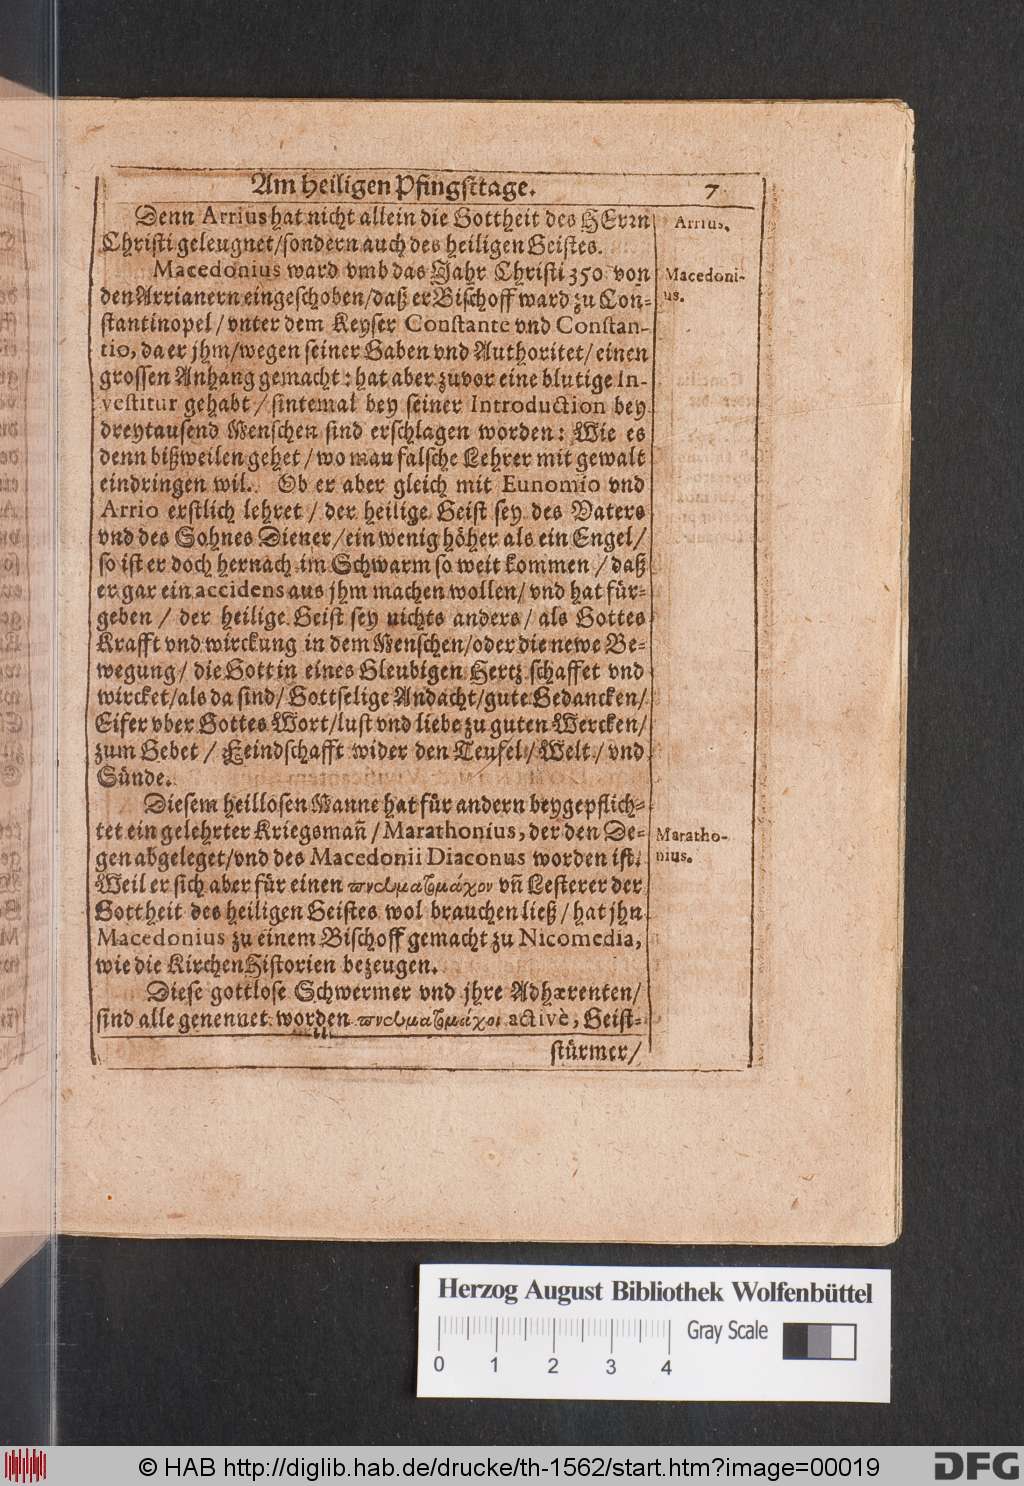 Am heiligen Pfingsttage. 7
Denn Arrius hat nicht allein die Gottheit des HErrn
Arrius.
Christi geleugnet/sondern auch des heiligen Geistes.
Macedonius ward vmb das Jahr Christi 350 von
Macedoni-
den Arrianern eingeschoben/daß er Bischoff ward zu Con-
us.
stantinopel/vnter dem Keyser Constante vnd Constan-
tio, da er jhm/wegen seiner Gaben vnd Authoritet/einen
grossen Anhang gemacht: hat aber zuvor eine blutige In-
vestitur gehabt/sintemal bey seiner Introduction bey
dreytausend Menschen sind erschlagen worden: Wie es
denn bißweilen gehet/wo man falsche Lehrer mit gewalt
eindringen wil. Ob er aber gleich mit Eunomio vnd
Arrio erstlich lehret/der heilige Geist sey des Vaters
vnd des Sohnes Diener/ein wenig höher als ein Engel/
so ist er doch hernach im Schwarm so weit kommen/daß
er gar ein accidens aus jhm machen wollen/vnd hat für-
geben/der heilige Geist sey nichts anders/als Gottes
Krafft vnd wirckung in dem Menschen/oder die newe Be-
wegung/die Gott in eines Gleubigen Hertz schaffet vnd
wircket/als da sind/Gottselige Andacht/gute Gedancken/
Eifer vber Gottes Wort/lust vnd liebe zu guten Wercken/
zum Gebet/Feindschafft wider den Teufel/Welt/vnd
Sünde.
Diesem heillosen Manne hat für andern beygepflich-
tet ein gelehrter Kriegsmañ/Marathonius, der den De-
Maratho-
gen abgeleget/vnd des Macedonii Diaconus worden ist.
nius.
Weil er sich aber für einen πνευματομάχον vñ Lesterer der
Gottheit des heiligen Geistes wol brauchen ließ/hat jhn
Macedonius zu einem Bischoff gemacht zu Nicomedia,
wie die KirchenHistorien bezeugen.
Diese gottlose Schwermer vnd jhre Adhærenten/
sind alle genennet worden πνευματομάχοι activè, Geist-
stürmer/
Herzog August Bibliothek Wolfenbüttel
Gray Scale
0 1 2 3 4
© HAB http://diglib.hab.de/drucke/th-1562/start.htm?image=00019
DFG